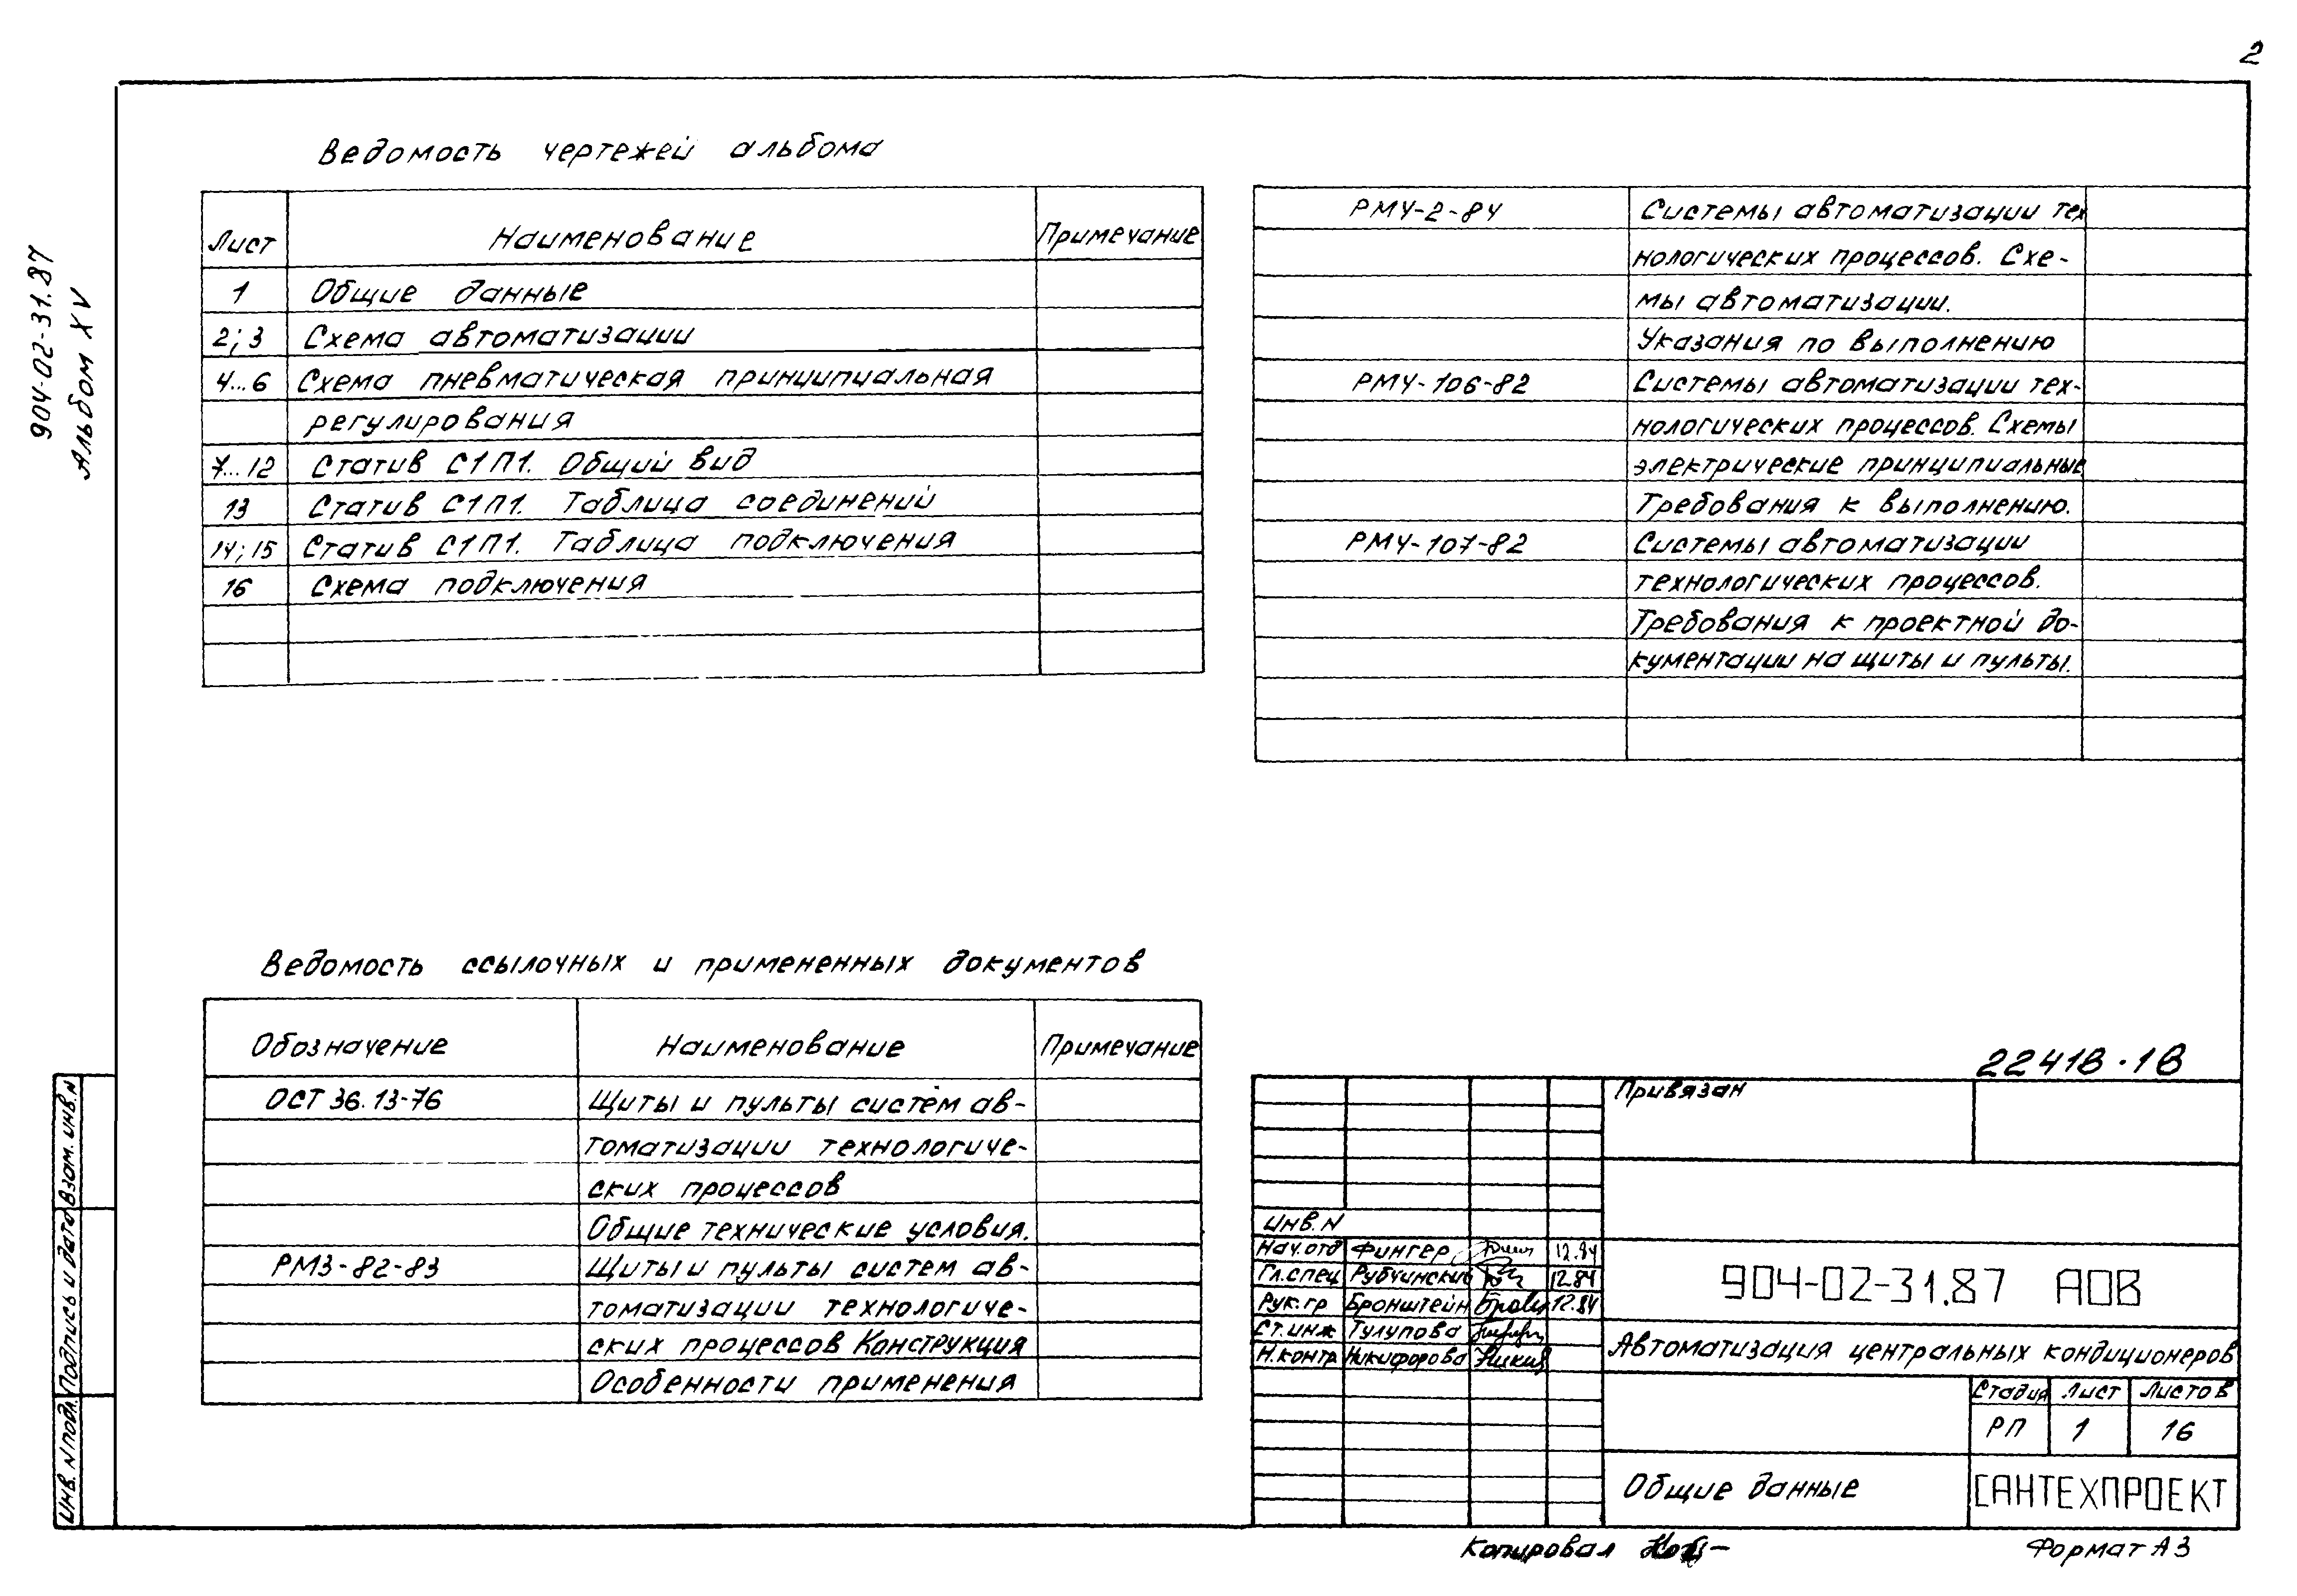 2
904-02-31.87
Альбом XV
Ведомость чертежей альбома
Лист Наименование Примечание
1 Общие данные
2; 3 Схема автоматизации
4...6 Схема пневматическая принципиальная
регулирования
7...12 Статив С1П1. Общий вид
13 Статив С1П1. Таблица соединений
14; 15 Статив С1П1. Таблица подключения
16 Схема подключения
РМ4-2-84 Системы автоматизации тех
нологических процессов. Схе-
мы автоматизации.
Указания по выполнению
РМ4-106-82 Системы автоматизации тех-
нологических процессов. Схемы
электрические принципиальные
Требования к выполнению.
РМ4-107-82 Системы автоматизации
технологических процессов.
Требования к проектной до-
кументации на щиты и пульты.
Ведомость ссылочных и примененных документов
Обозначение Наименование Примечание
ОСТ 36.13-76 Щиты и пульты систем ав-
томатизации технологиче-
ских процессов
Общие технические условия.
РМ3-82-83 Щиты и пульты систем ав-
томатизации технологиче-
ских процессов Конструкция
Особенности применения
22418-18
Привязан
Инв. N
Нач.отд Фингер 12.84
Гл.спец Рубчинский 12.84
Рук.гр Бронштейн 12.84
Ст.инж Тулупова
Н.контр Никифорова
904-02-31.87 АОВ
Автоматизация центральных кондиционеров
Стадия Лист Листов
РП 1 16
Общие данные
САНТЕХПРОЕКТ
Инв. N подл. Подпись и дата Взам. инв. N
Копировал
Формат А3